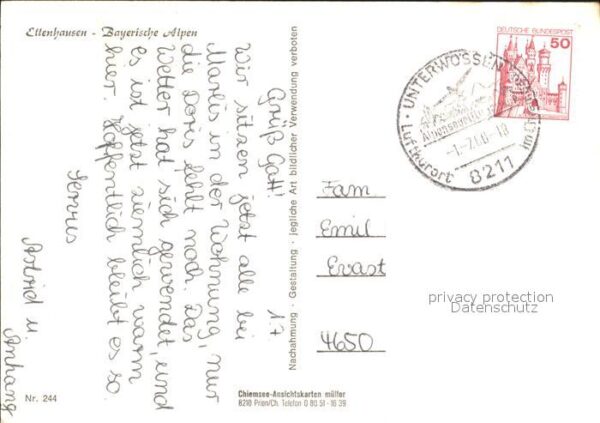 Ettenhausen - Bayerische Alpen
Grüß Gott! 1.7
Wir sitzen jetzt alle bei
Marlis in der Wohnung, nur
die Doris fehlt noch. Das
Wetter hat sich gewendet, und
es ist jetzt ziemlich warm
hier. Hoffentlich bleibt es so.
Servus
Astrid u.
Anhang
Nr. 244
Nachahmung · Gestaltung · jegliche Art bildlicher Verwendung verboten
Chiemsee-Ansichtskarten müller
8210 Prien/Ch. Telefon 0 80 51 - 16 39
DEUTSCHE BUNDESPOST
50
UNTERWÖSSEN
Luftkurort
8211
Fam
Emil
Evast
4650
privacy protection
Datenschutz